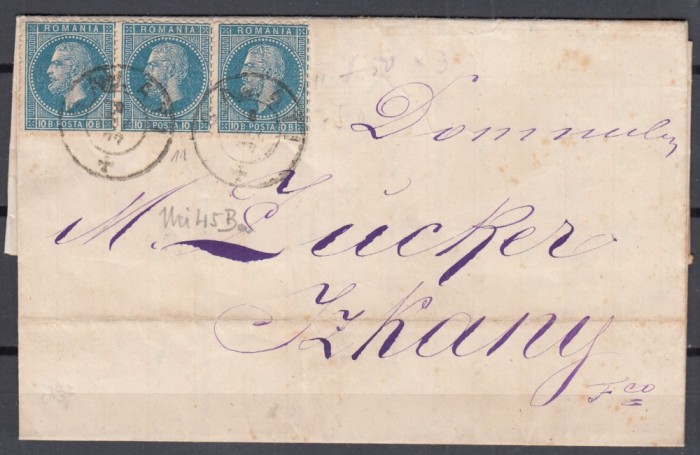 ROMANIA ROMANIA ROMANIA
10 B POSTA 10 B 10 B POSTA 10 B 10 B POSTA 10 B
11
Mi 45B
Domnului
M. Zucker
Itzkany
Fco